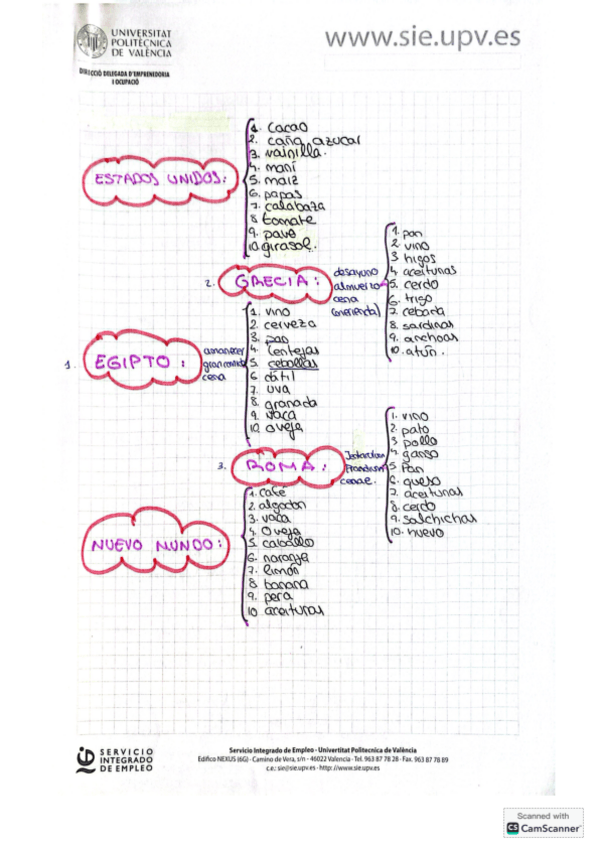 UNIVERSITAT
POLITÈCNICA
DE VALÈNCIA
DIRECCIÓ DELEGADA D'EMPRENEDORIA
I OCUPACIÓ
www.sie.upv.es
ESTADOS UNIDOS:
1. Cacao
2. caña azucar
3. vainilla.
4. maní
5. maiz
6. papas
7. calabaza
8 tomate
9. pavo
10. girasol.
2. GRECIA:
desayuno
almuerzo
cena
(merienda)
1. pan
2. vino
3 higos
4 aceitunas
5. cerdo
6. trigo
7. cebada
8. sardinas
9. anchoas
10. atún.
1. EGIPTO:
amanecer
gran comida
cena
1. vino
2. cerveza
3. pan
4. Lentejas
5. cebollas
6 dátil
7. uva
8. granada
9. vaca
10. oveja
3. ROMA:
cenae.
1. vino
2. pato
3 pollo
4. ganso
5 Pan
6. queso
7. aceitunas
8. cerdo
9. salchichas
10. huevo
NUEVO MUNDO:
1. café
2. algodon
3. vaca
4. Oveja
5. caballo
6. naranja
7. limón
8 banana
9. pera
10 aceitunas
SERVICIO
INTEGRADO
DE EMPLEO
Servicio Integrado de Empleo · Univertitat Politecnica de València
Edifico NEXUS (6G) · Camino de Vera, s/n · 46022 Valencia · Tel. 963 87 78 28 · Fax. 963 87 78 89
c.e.: sie@sie.upv.es · http: //www.sie.upv.es
Scanned with
CS CamScanner